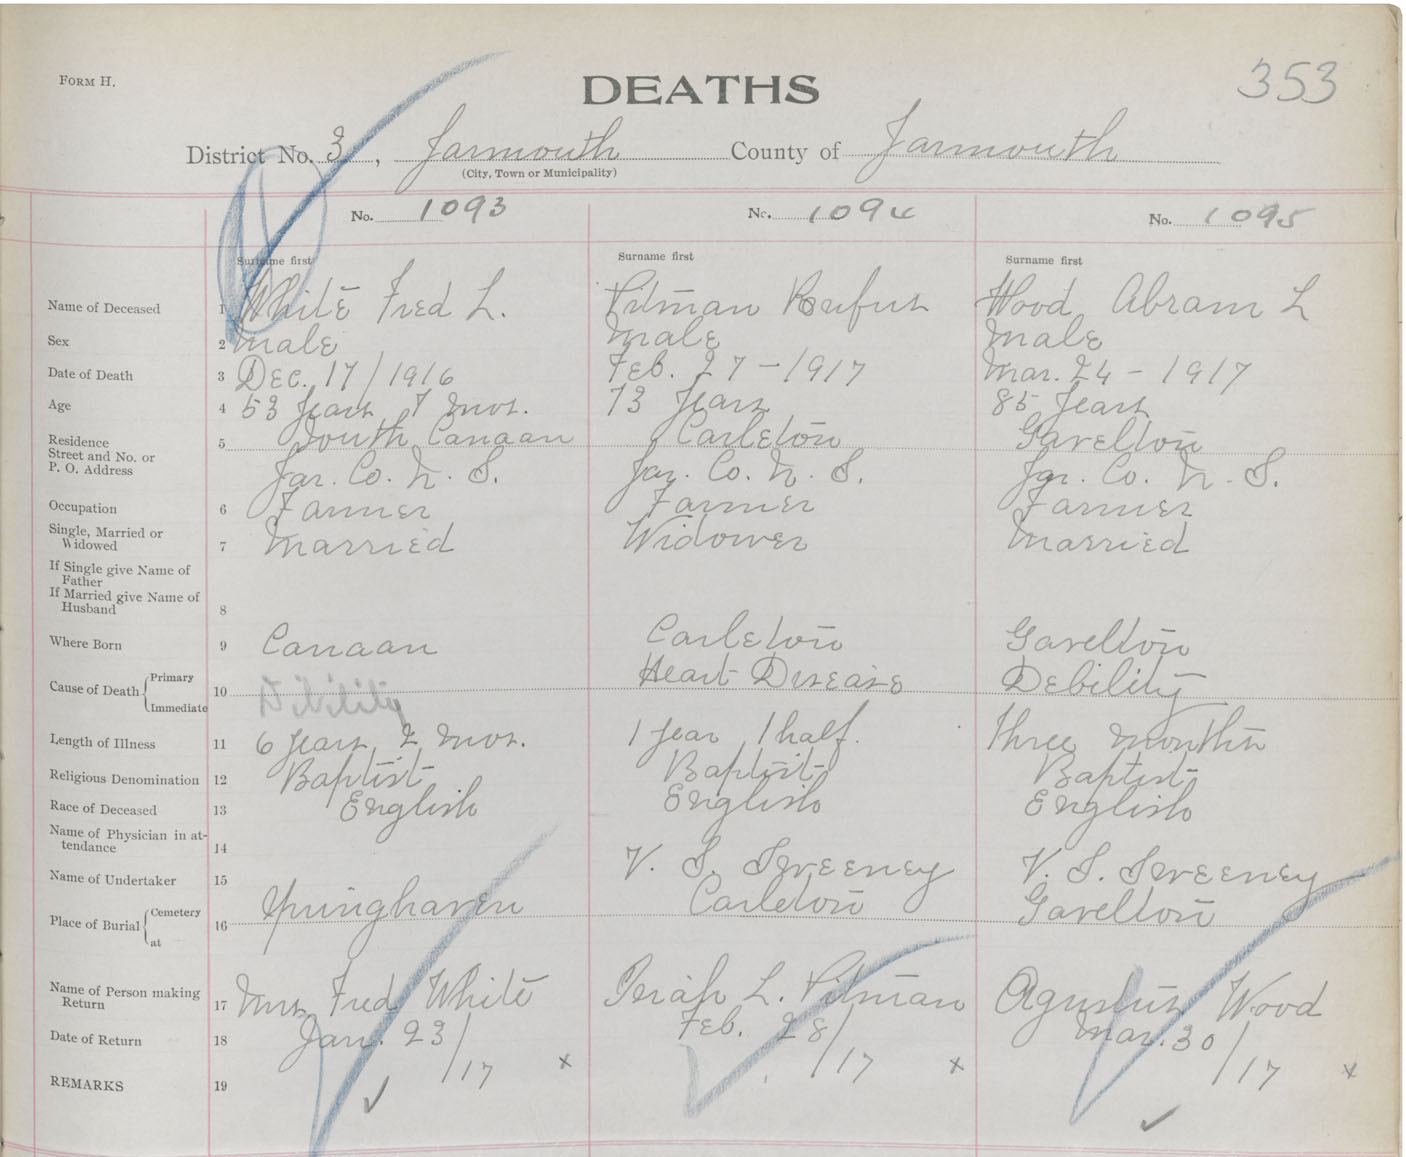 FORM H.
DEATHS
353
District No. 3, Yarmouth County of Yarmouth
(City, Town or Municipality)
No. 1093 No. 1094 No. 1095
Surname first Surname first Surname first
Name of Deceased 1 White Fred L. Pitman Rufus Wood Abram L
Sex 2 Male Male Male
Date of Death 3 Dec. 17/1916 Feb. 27-1917 Mar. 24-1917
Age 4 53 Years 7 mos. 73 Years 85 Years
Residence 5 South Canaan Carleton Gavelton
Street and No. or
P. O. Address Yar. Co. N. S. Yar. Co. N. S. Yar. Co. N. S.
Occupation 6 Farmer Farmer Farmer
Single, Married or
Widowed 7 Married Widower Married
If Single give Name of
Father
If Married give Name of
Husband 8
Where Born 9 Canaan Carleton Gavelton
Cause of Death Primary Heart Disease Debility
Immediate 10 Dibility
Length of Illness 11 6 years 2 mos. 1 year 1 half. Three months
Religious Denomination 12 Baptist Baptist Baptist
Race of Deceased 13 English English English
Name of Physician in at-
tendance 14
Name of Undertaker 15 V. S. Sweeney V. S. Sweeney
Place of Burial Cemetery 16 Springhaven Carleton Gavelton
at
Name of Person making
Return 17 Mrs. Fred White L. Pitman Wood
Date of Return 18 Jan. 23/17 x Feb. 28/17 x Mar. 30/17 x
REMARKS 19